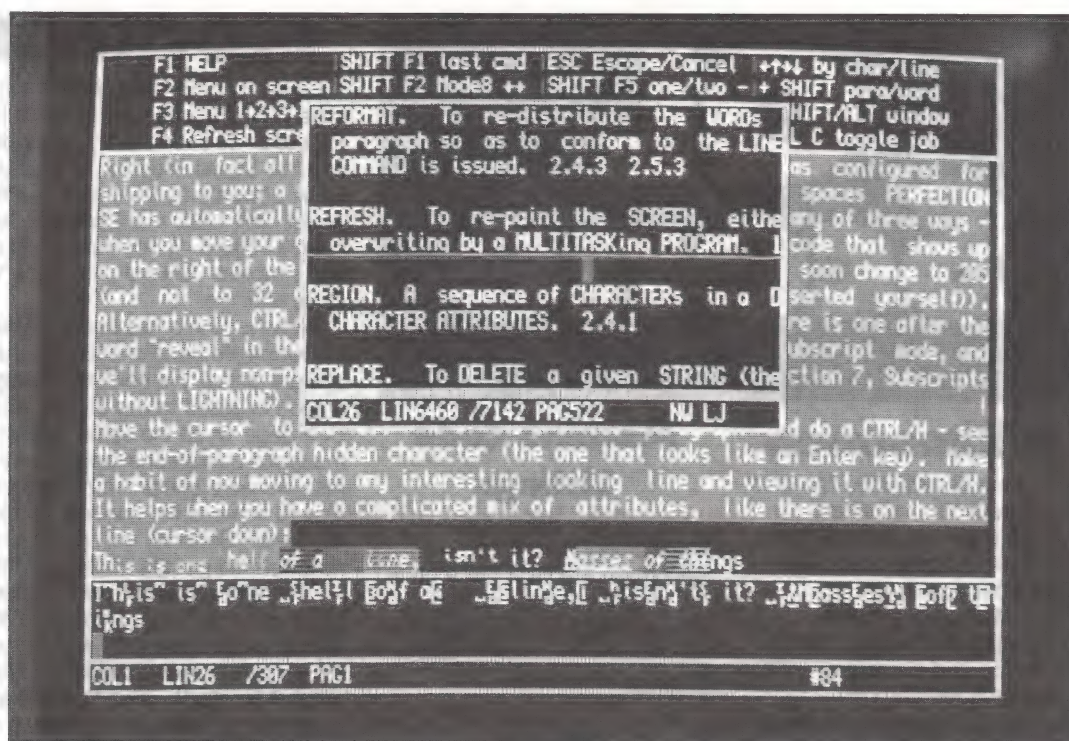 F1 HELP SHIFT F1 last cmd ESC Escape/Cancel ←↑→↓ by char/line
F2 Menu on screen SHIFT F2 Mode8 ++ SHIFT F5 one/two - + SHIFT para/word
F3 Menu 1+2+3+ HIFT/ALT window
F4 Refresh scre L C toggle job
REFORMAT. To re-distribute the WORDs
paragraph so as to conform to the LINE
COMMAND is issued. 2.4.3 2.5.3
REFRESH. To re-paint the SCREEN, eithe
overwriting by a MULTITASKing PROGRAM. 1
REGION. A sequence of CHARACTERs in a D
CHARACTER ATTRIBUTES. 2.4.1
REPLACE. To DELETE a given STRING (the
COL26 LIN6460 /7142 PAG522 NW LJ
Right (in fact all as configured for
shipping to you; a spaces PERFECTION
SE has automaticall any of three ways -
when you move your code that shows up
on the right of the soon change to 205
(and not to 32 serted yourself)).
Alternatively, CTRL/ re is one after the
word "reveal" in the ubscript mode, and
we'll display non-p ction 7, Subscripts
without LIGHTNING).
Move the cursor to d do a CTRL/H - see
the end-of-paragraph hidden character (the one that looks like an Enter key). Make
a habit of now moving to any interesting looking line and viewing it with CTRL/H.
It helps when you have a complicated mix of attributes, like there is on the next
line (cursor down):
This is one hell of a line, isn't it? Masses of things
COL1 LIN26 /307 PAG1 #84